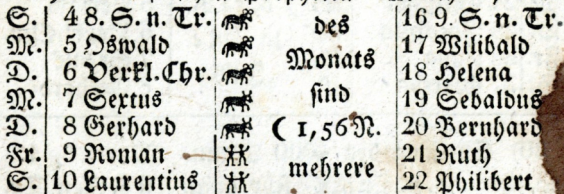 S. 4 8. S. n. Tr. des 16 9. S. n. Tr.
M. 5 Oswald Monats 17 Wilibald
D. 6 Verkl. Chr. 18 Helena
M. 7 Sextus sind 19 Sebaldus
D. 8 Gerhard ( 1,56 N. 20 Bernhard
Fr. 9 Roman mehrere 21 Ruth
S. 10 Laurentius 22 Philibert